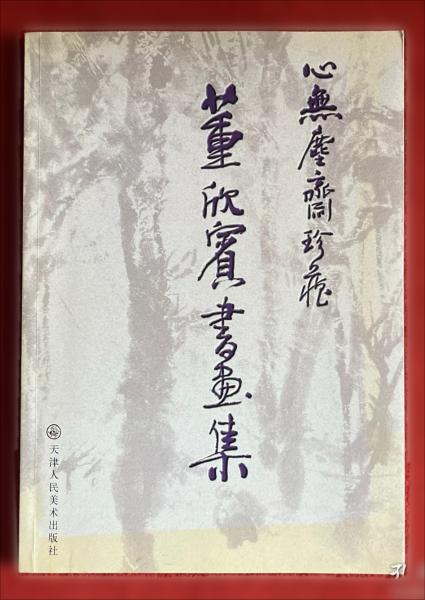 心無塵齋珍藏
董欣賓書畫集
天津人民美术出版社